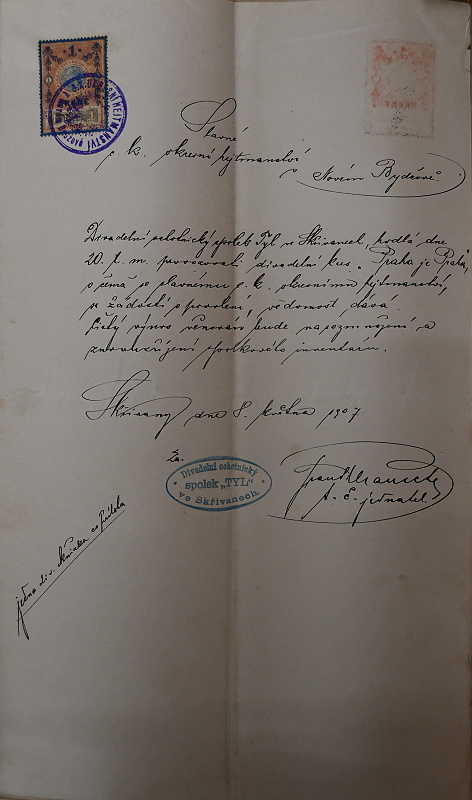 1
Slavné
c. k. okresní hejtmanství
v Novém Bydžově.
Divadelní ochotnický spolek Tyl ve Skřivanech, hodlá dne
20. t. m. provozovati divadelní kus „Praha je Praha“,
o čemž se slavnému c. k. okresnímu hejtmanství,
se žádostí o povolení, vědomost dává.
Čistý výnos věnován bude na rozmnožení a
zdokonalení spolkového inventáře.
Skřivany dne 8. května 1907
Za
Divadelní ochotnický
spolek „TYL“
ve Skřivanech.
t. č. jednatel.
jedna div. knížka co příloha